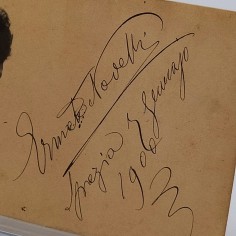 Ermete Novelli
Spezia 7 Gennajo
1903